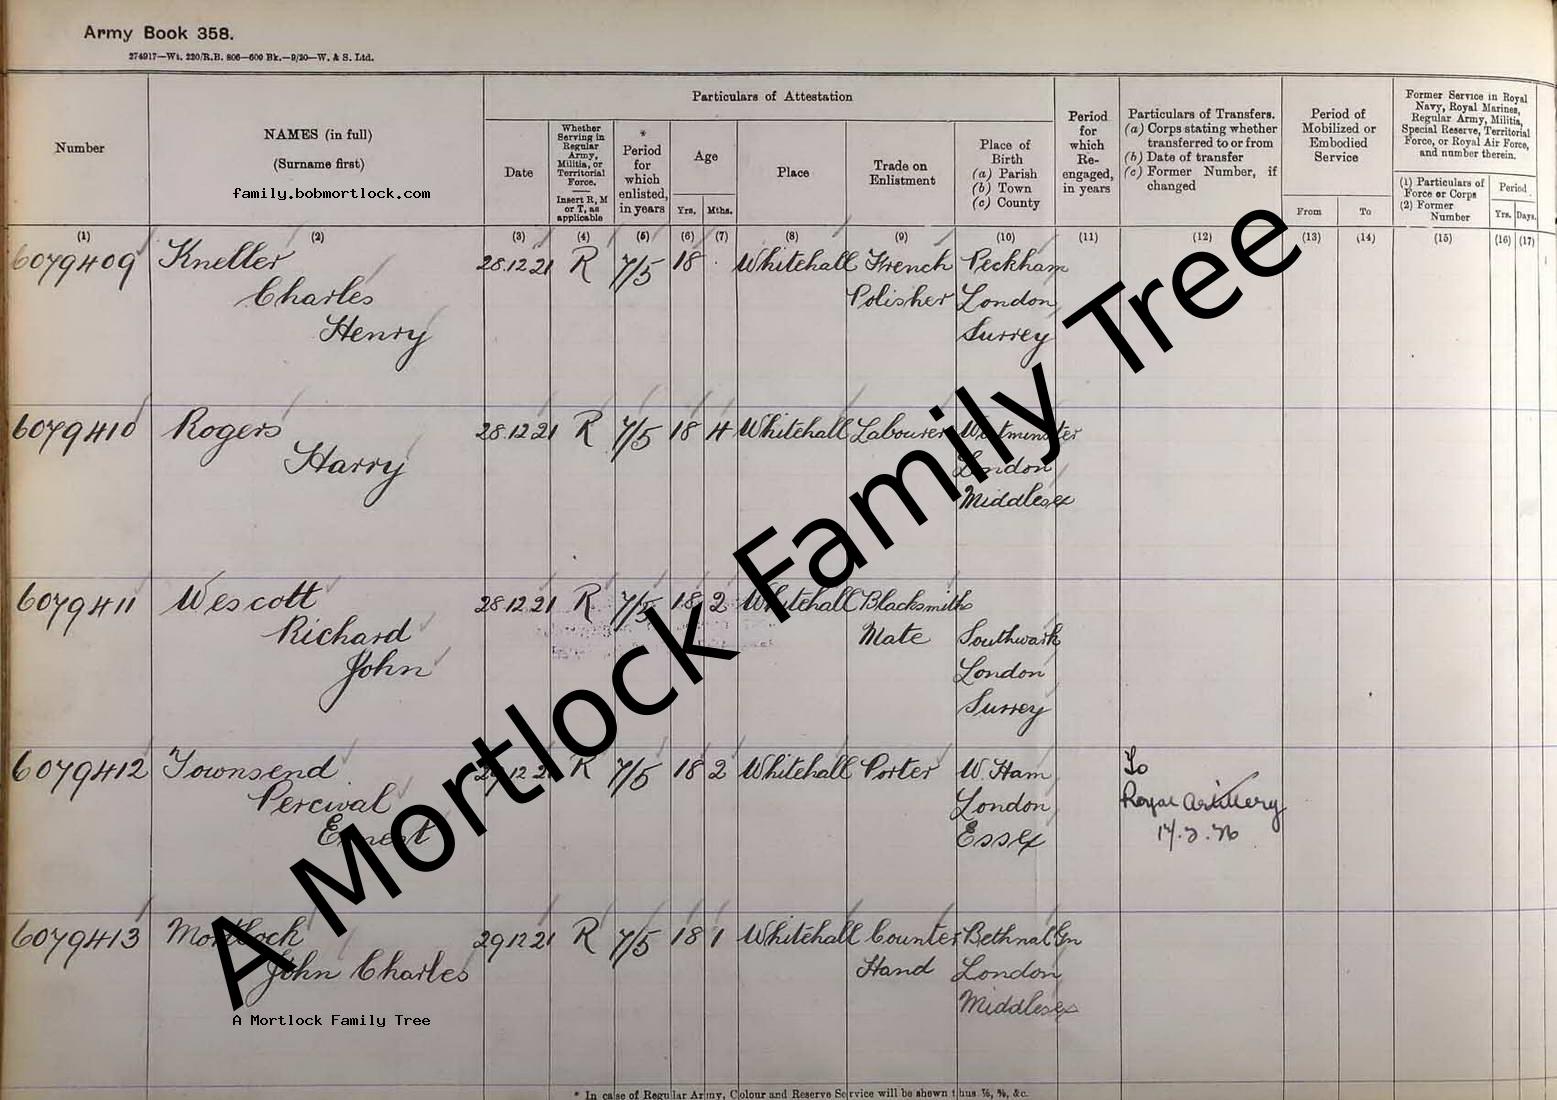 Army Book 358.
274917—Wt. 220/R.B. 806—600 Bk.—9/20—W. & S. Ltd.
Number
NAMES (in full)
(Surname first)
family.bobmortlock.com
Particulars of Attestation
Date
Whether Serving in Regular Army, Militia, or Territorial Force.
Insert R, M or T, as applicable
* Period for which enlisted, in years
Age
Yrs.
Mths.
Place
Trade on Enlistment
Place of Birth
(a) Parish
(b) Town
(c) County
Period for which Re-engaged, in years
Particulars of Transfers.
(a) Corps stating whether transferred to or from
(b) Date of transfer
(c) Former Number, if changed
Period of Mobilized or Embodied Service
From
To
Former Service in Royal Navy, Royal Marines, Regular Army, Militia, Special Reserve, Territorial Force, or Royal Air Force, and number therein.
(1) Particulars of Force or Corps
(2) Former Number
Period
Yrs.
Days.
(1) (2) (3) (4) (5) (6) (7) (8) (9) (10) (11) (12) (13) (14) (15) (16) (17)
6079409 Kneller 28.12.21 R 7/5 18 . Whitehall French Peckham
Charles Polisher London
Henry Surrey
6079410 Rogers 28.12.21 R 7/5 18 4 Whitehall Labourer Westminster
Harry London
Middlesex
6079411 Wescott 28.12.21 R 7/5 18 2 Whitehall Blacksmiths
Richard Mate Southwark
John London
Surrey
6079412 Townsend 28.12.21 R 7/5 18 2 Whitehall Porter W. Ham To
Percival London Royal Artillery
Ernest Essex
6079413 Mortlock 29.12.21 R 7/5 18 1 Whitehall Counter Bethnal Gn
John Charles Hand London
Middlesex
A Mortlock Family Tree
A Mortlock Family Tree
* In case of Regular Army, Colour and Reserve Service will be shewn thus